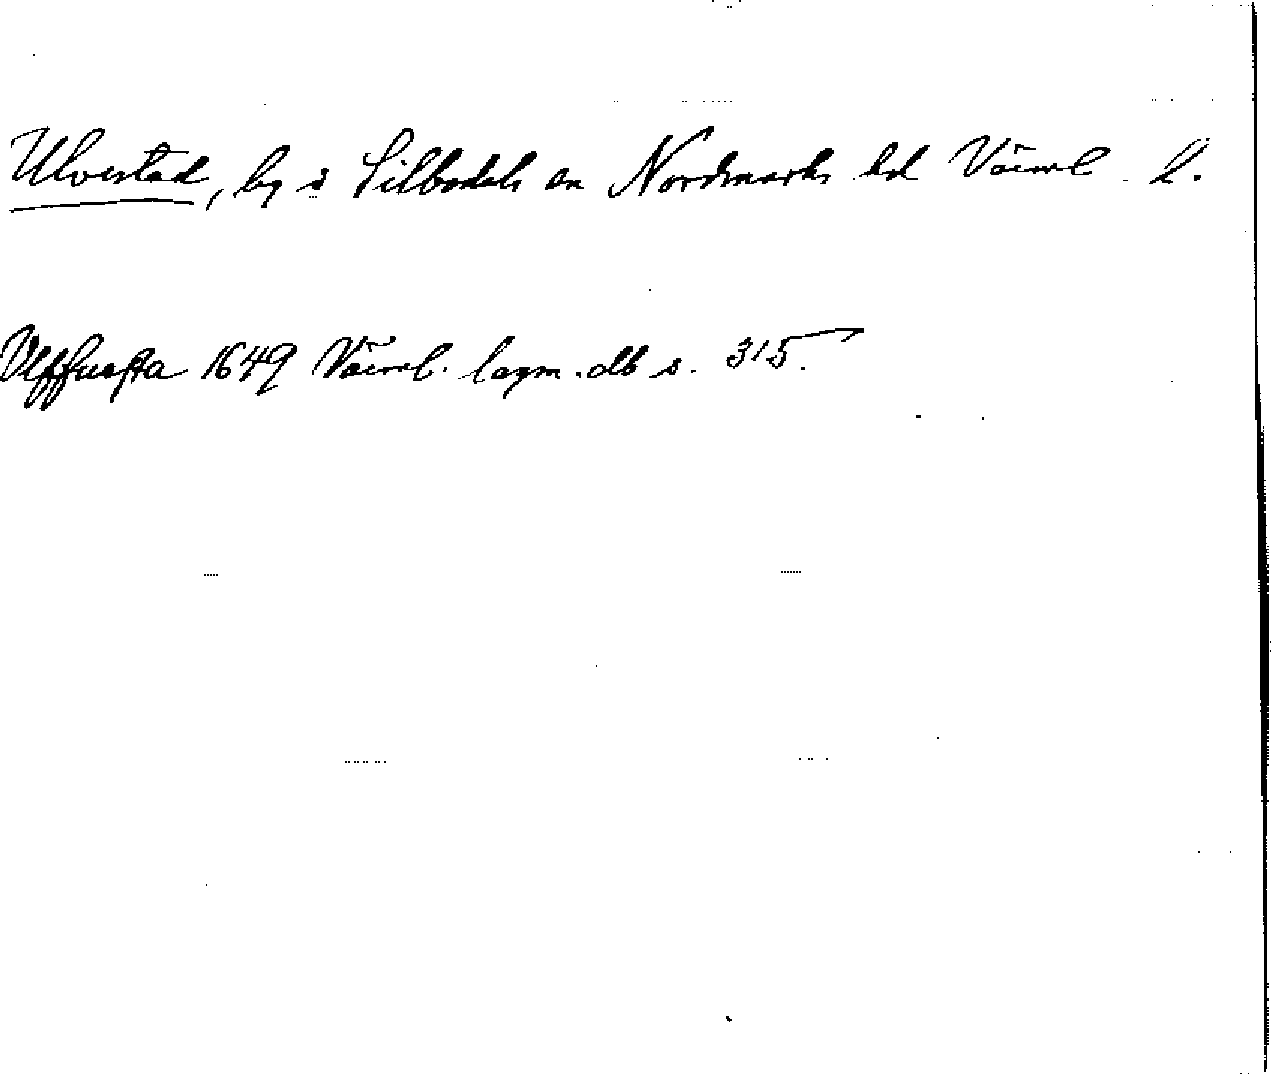 Ulvestad, by i Silbodals sn Nordmarks hd Värml. l.
Ulffuesta 1649 Värml. lagm.db s. 315.